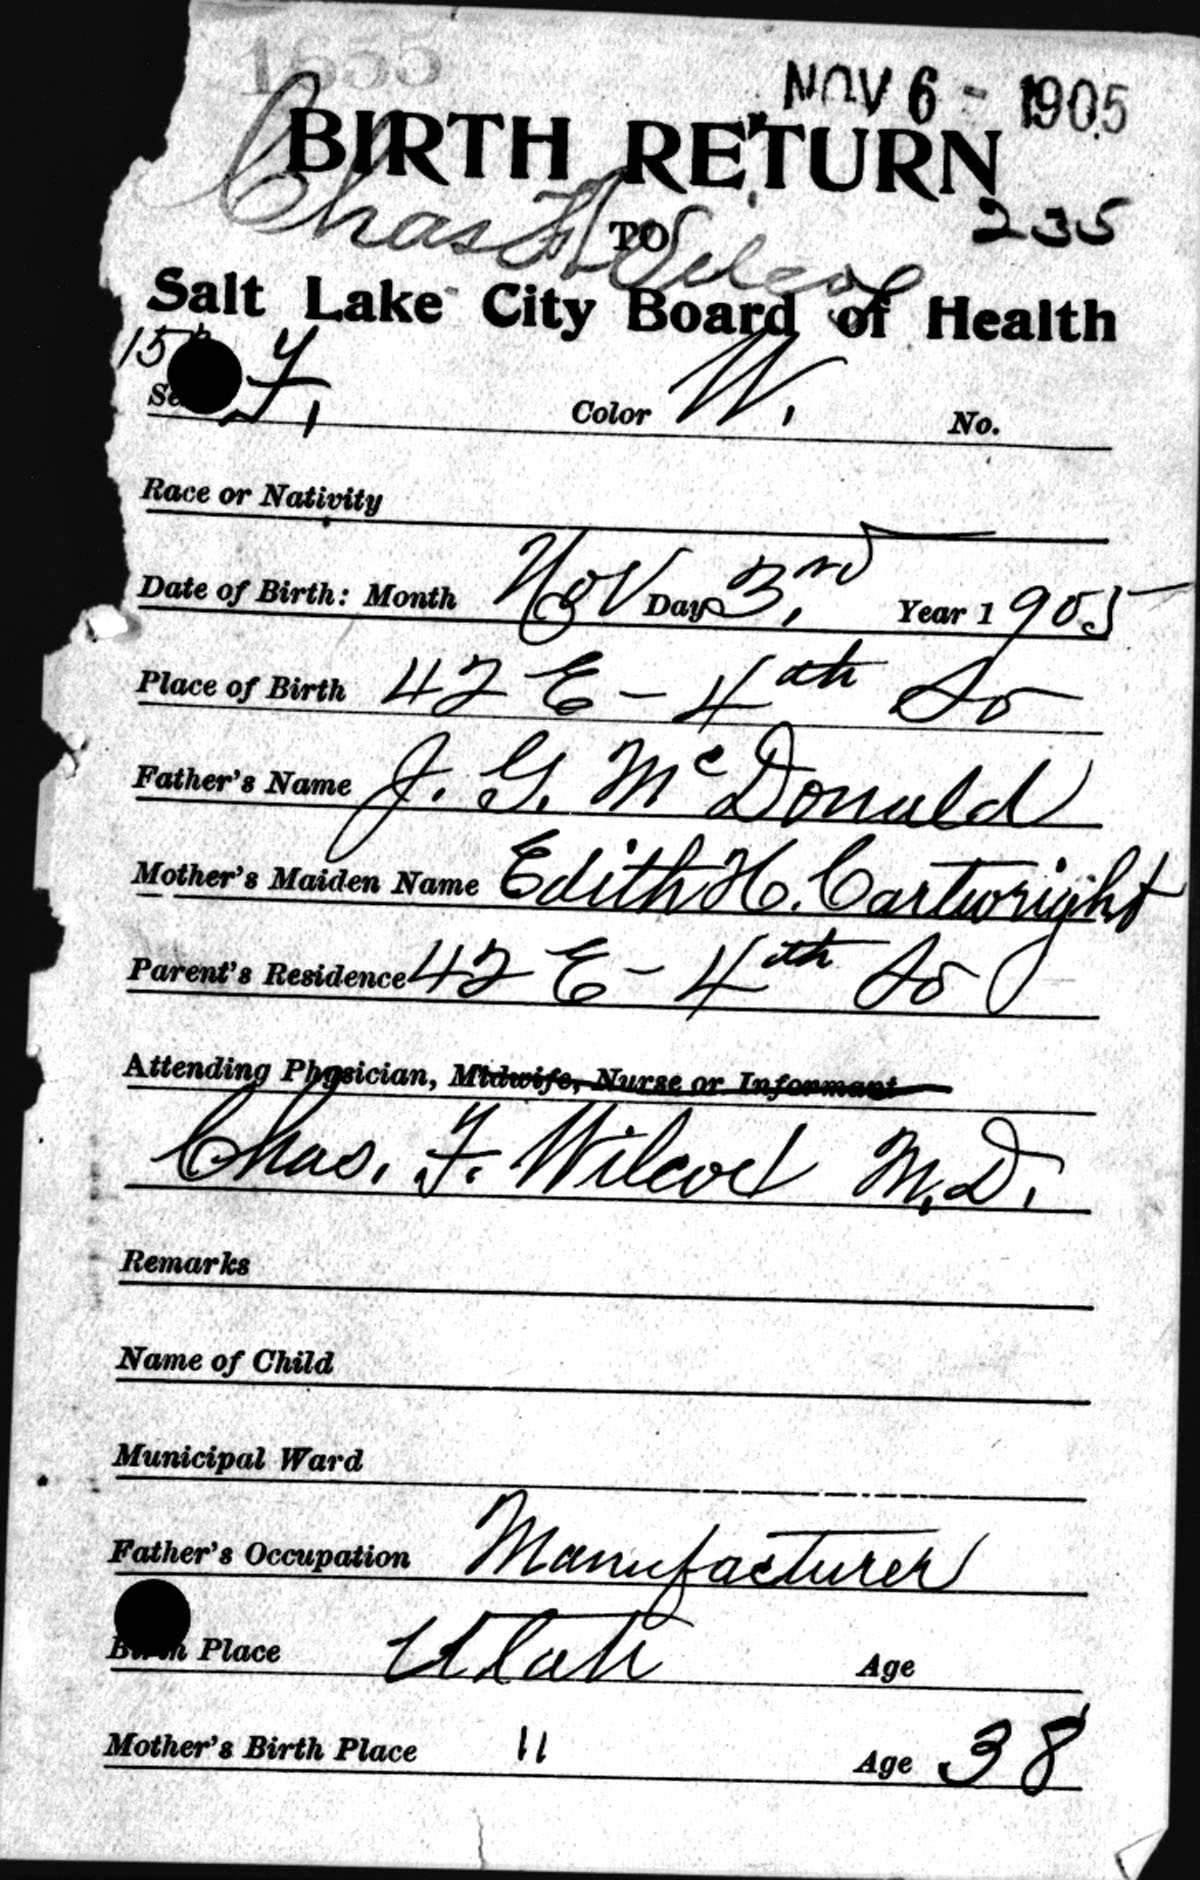 1655
NOV 6 - 1905
BIRTH RETURN
235
TO
Chas F Wilcox
Salt Lake City Board of Health
Sex F. Color W. No.
Race or Nativity
Date of Birth: Month Nov Day 3rd Year 1905
Place of Birth 42 E - 4th So
Father's Name J. G. McDonald
Mother's Maiden Name Edith H. Cartwright
Parent's Residence 42 E - 4th So
Attending Physician, Midwife, Nurse or Informant
Chas. F. Wilcox M.D.
Remarks
Name of Child
Municipal Ward
Father's Occupation Manufacturer
Birth Place Utah Age
Mother's Birth Place " Age 38